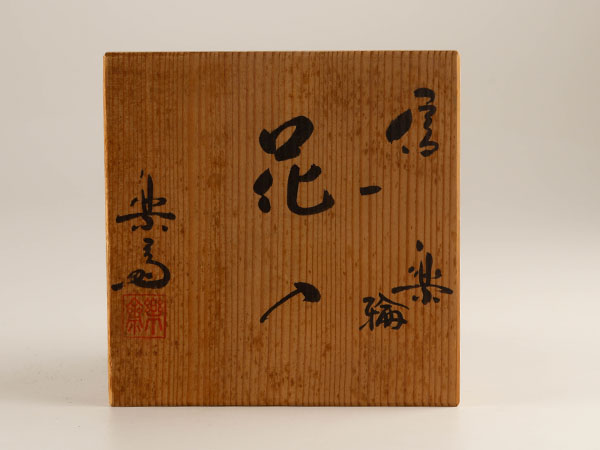 信楽
一輪
花入
楽斎